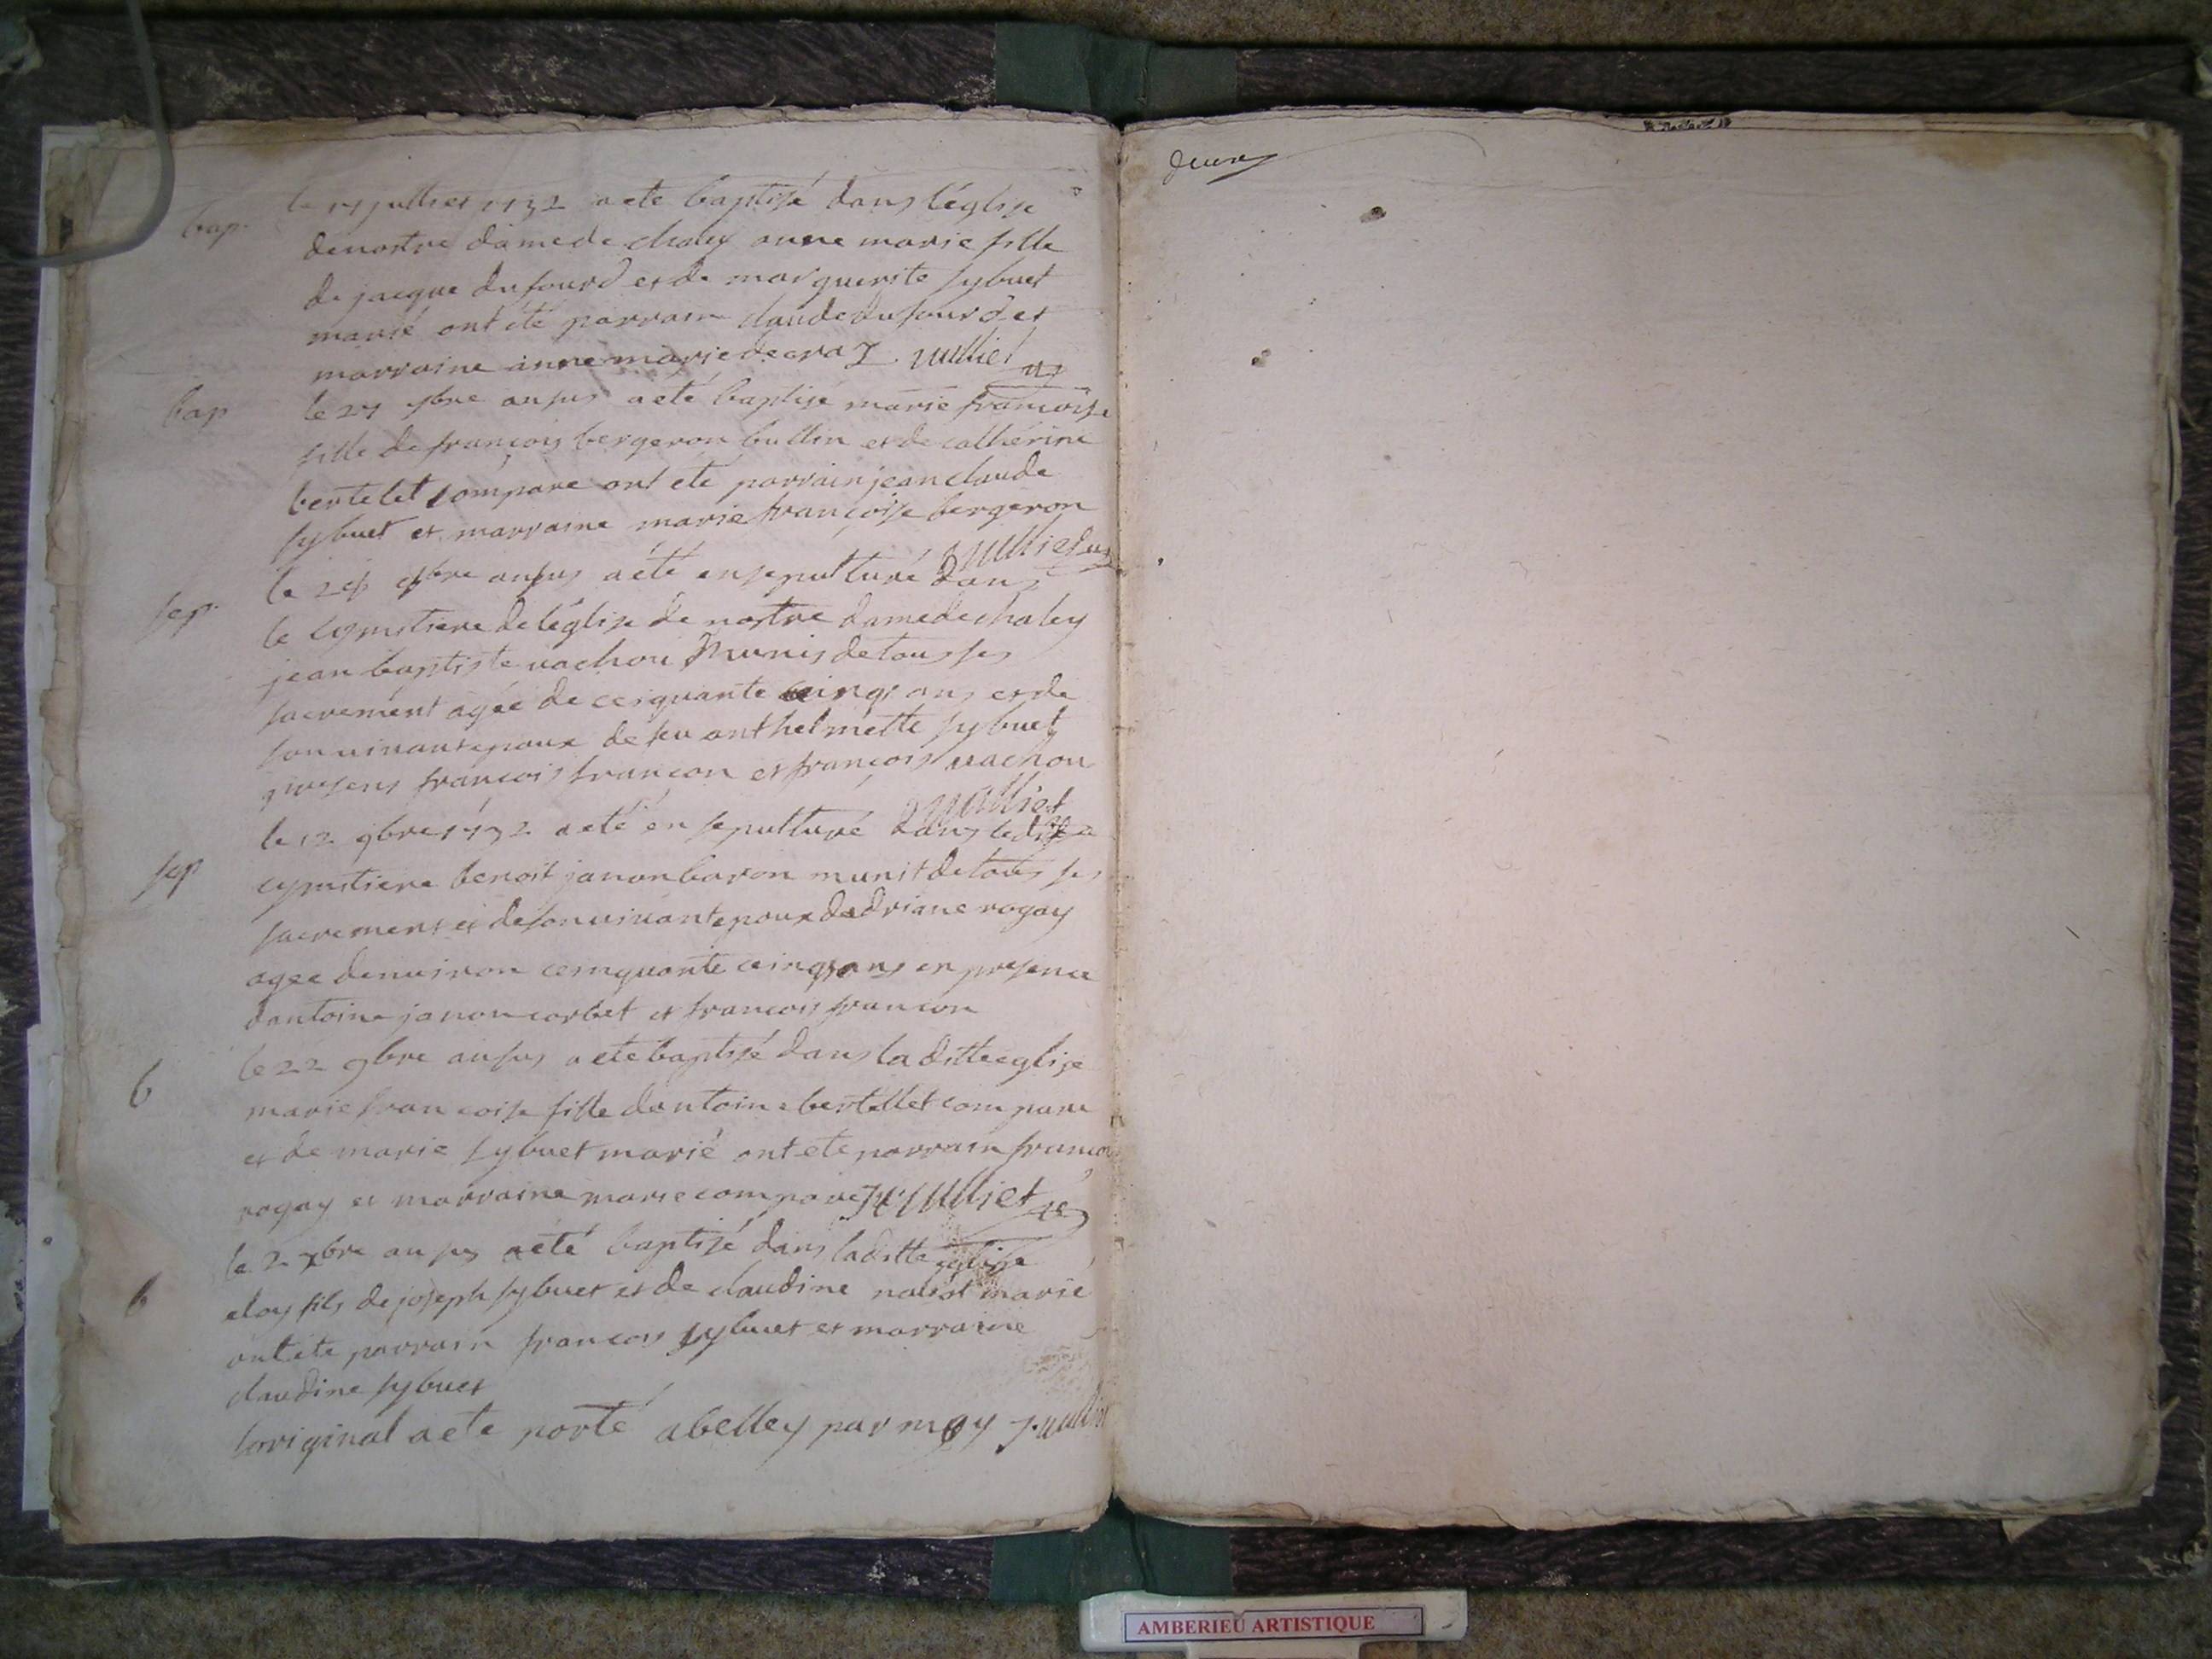 bap. le 17 julliet 1732 a ete baptisé dans l'églize
de nostre dame de chaley anne marie fille
de jacque dufourd et de marguerite sybuet
marié ont été parrain claude dufourd et
marraine anne marie
bap le 27 bre ansus a été baptisé marie francoise
fille de françois bergeron bullin et de cathérine
bertelet compare ont été parrain jean claude
sybuet et marraine marie françoise bergeron
julliet
sep. le bre ansus a été ensepulturé dans
le cymitiere de léglize de nostre dame de chaley
jean baptiste vachon munis de tous ses
sacrement agée de cenquante cinq ans et de
son vivant epoux de feu anthelmette sybuet
presens francois francon et françois vachon
julliet
sep le 12 9bre 1732 a eté ensepulturé dans ledit
cymitiere benoit janon baron munit de tous ses
sacrement et de son vivant epoux dadriane rogay
agee denviron cemquante cinq ans en presence
dantoine janon corbet et francois francon
b le 22 9bre ansus a ete baptisé dans la ditte eglize
marie francoise fille dantoine bertellet compare
et de marie sybuet marié ont ete parrain francois
rogay et marraine marie compare julliet
b le 2 xbre ansus a eté baptizé dans laditte eglise
eloy fils de joseph sybuet et de claudine marié
ont ete parrain francois sybuet et marraine
claudine sybuet
loriginal a ete porté a belley par moy julliet
AMBERIEU ARTISTIQUE